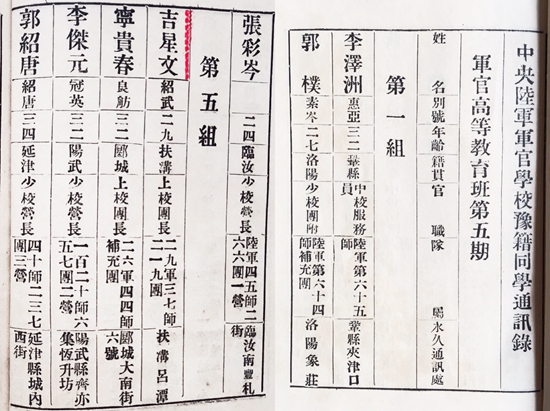 中央陸軍軍官學校豫籍同學通訊錄
軍官高等教育班第五期
姓名 別號 年齡 籍貫 官職 隊屬 永久通訊處
第一組
李澤洲 惠亞 三二 鞏縣 中校服務員 陸軍第六十五師 鞏縣夾津口
郭樸 素岑 二七 洛陽 少校團附 陸軍第六十四師補充團 洛陽象莊
張彩岑 二四 臨汝 少校營長 陸軍四五師二六六團一營 臨汝南豐札街
第五組
吉星文 紹武 二九 扶溝 上校團長 二九軍三七師二一九團 扶溝呂潭
寧貴春 良舫 三二 郾城 上校團長 二六軍四四師補充團 郾城大南街六號
李傑元 冠英 三二 陽武 少校營長 一百二十師六五七團二營 陽武縣齊亦集恆升坊
郭紹唐 紹唐 三四 延津 少校營長 四十師二三七團三營 延津縣城內西街